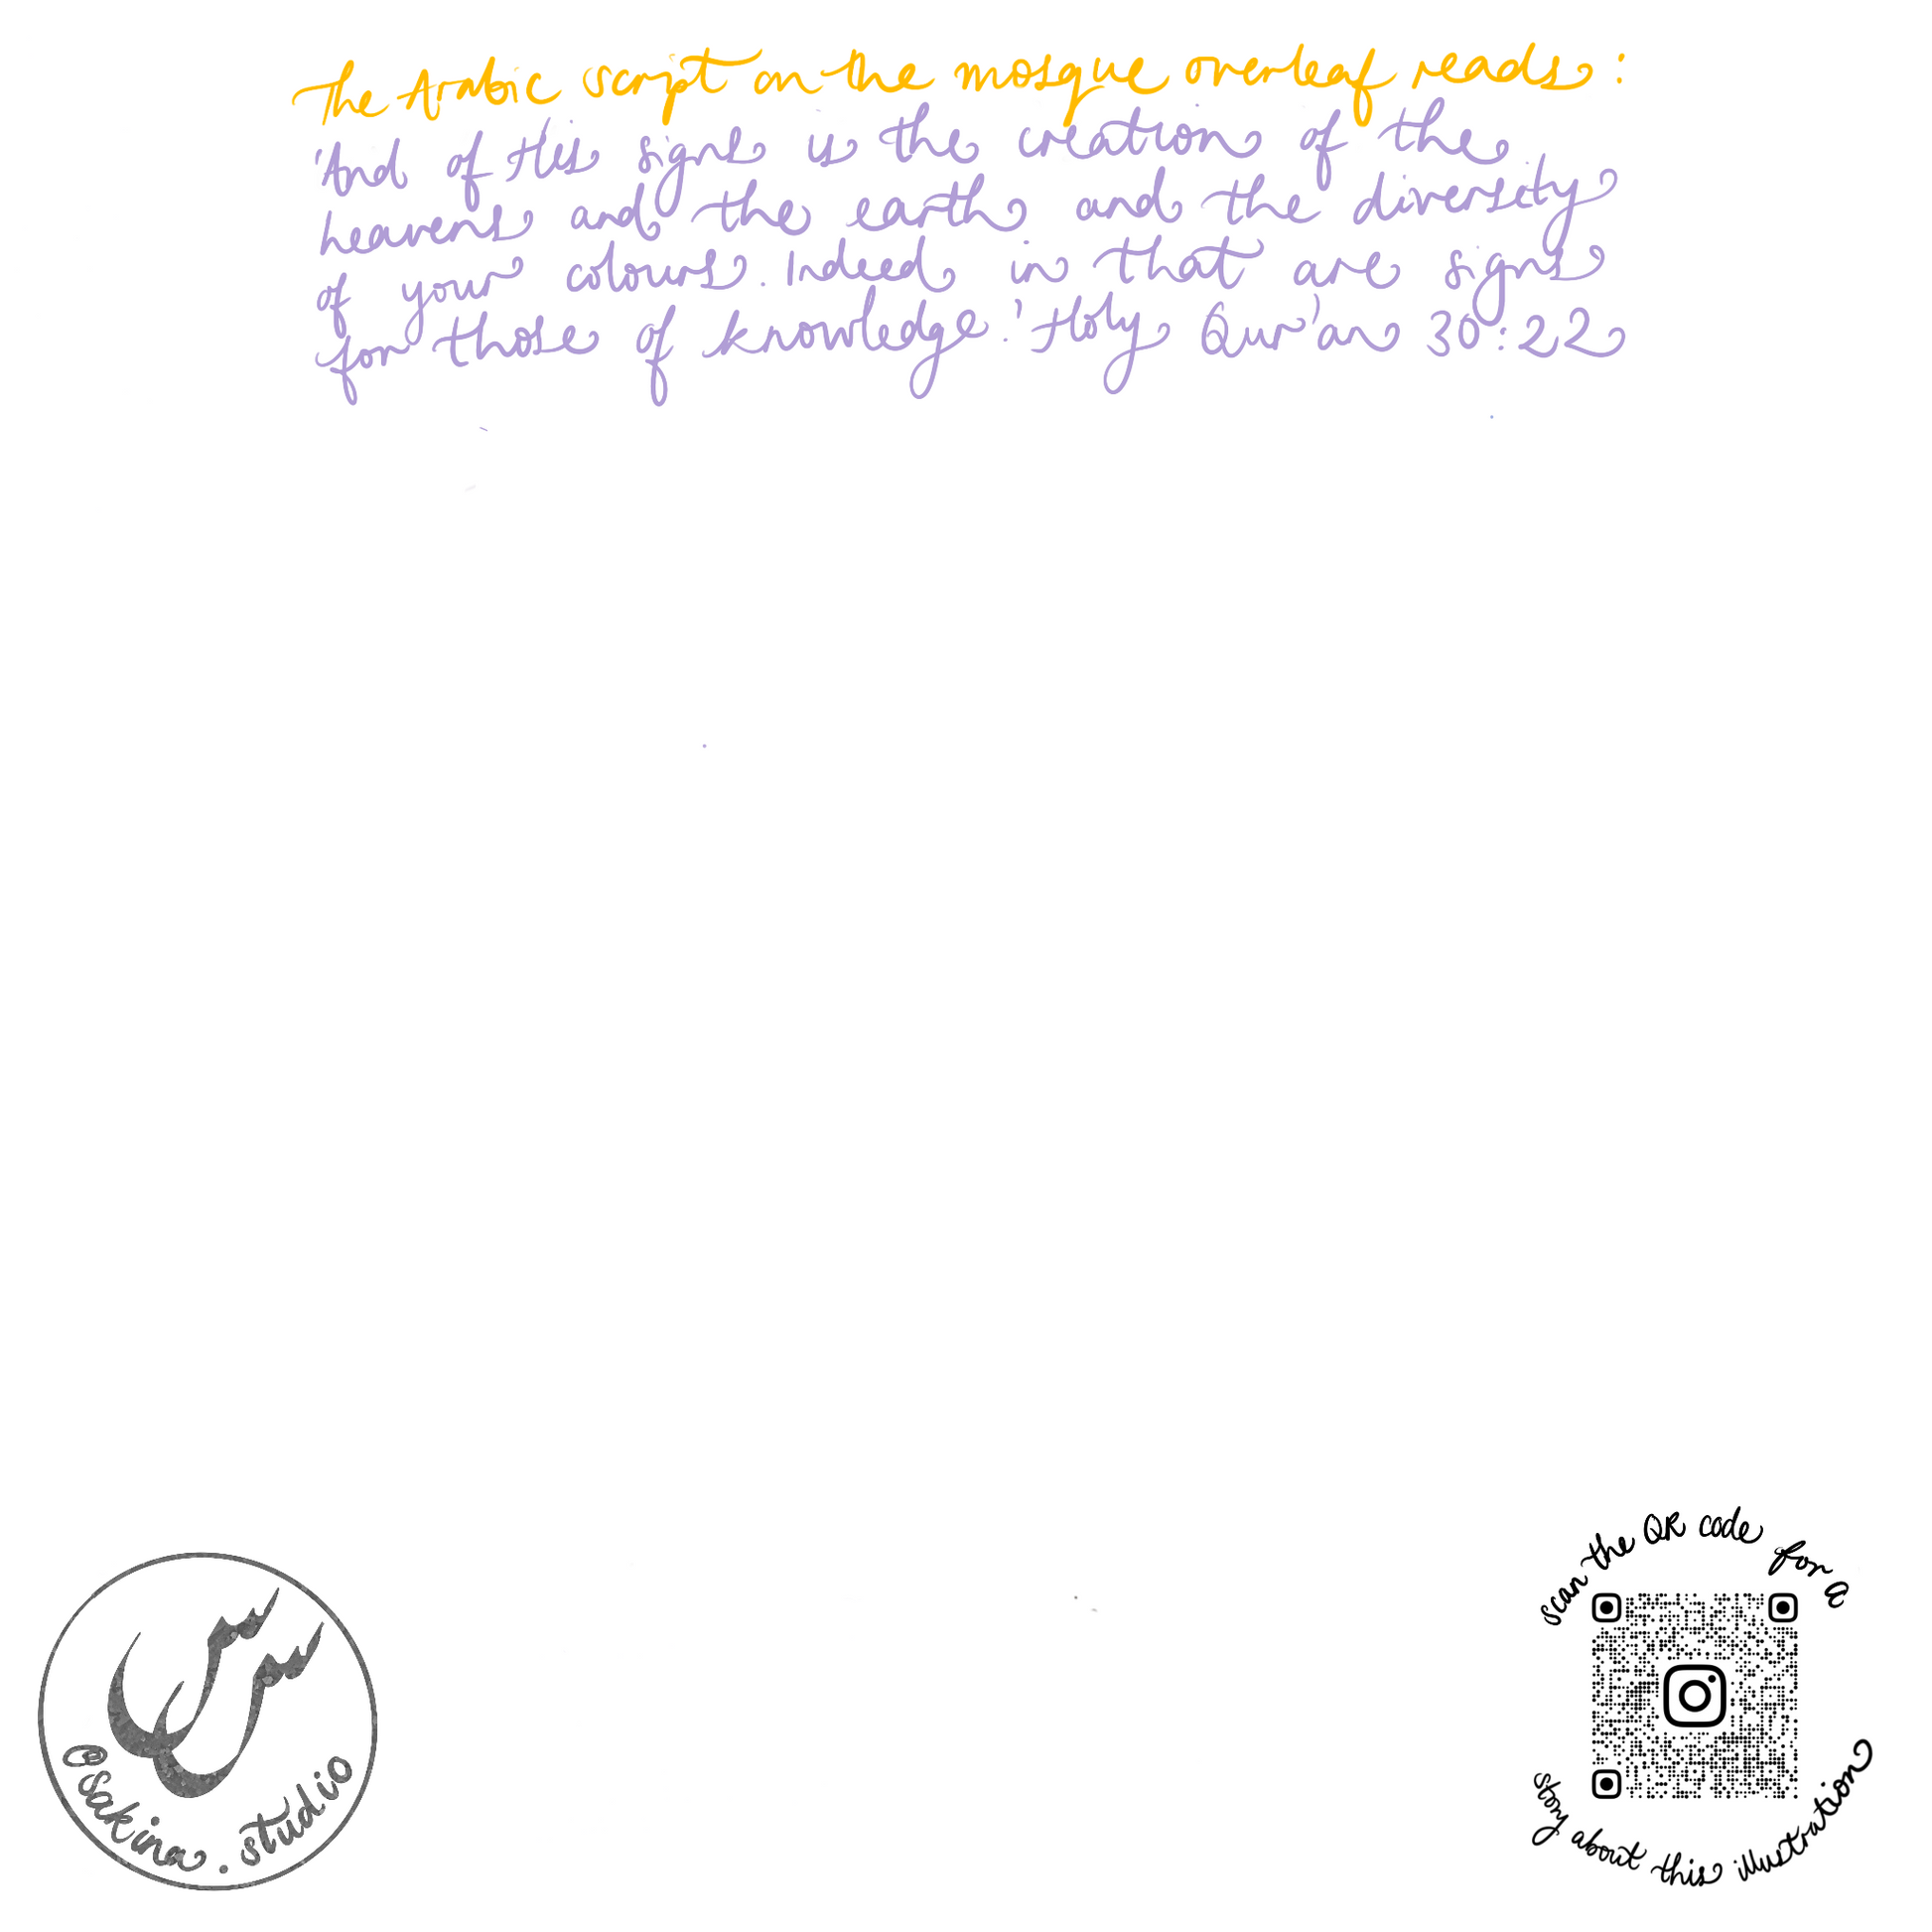 The Arabic script on the mosque overleaf reads:
'And of His signs is the creation of the
heavens and the earth and the diversity
of your colours. Indeed in that are signs
for those of knowledge.' Holy Qur'an 30:22
@sakina.studio
scan the QR code for a
story about this illustration